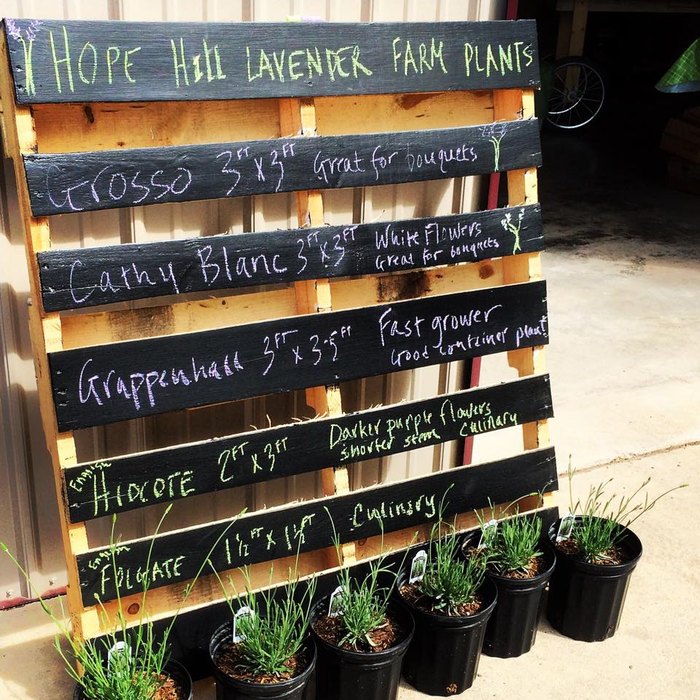 HOPE Hill LAVENDER FARM PLANTS
Grosso 3FT X 3FT Great for bouquets
Cathy Blanc 3FT X 3FT White Flowers
Great for bouquets
Grappenhall 3FT X 3-5FT Fast grower
Good container plant
English
HIDCOTE 2FT X 3FT Darker purple flowers
shorter stem Culinary
English
FOLGATE 1 1/2FT X 1 1/2FT Culinary